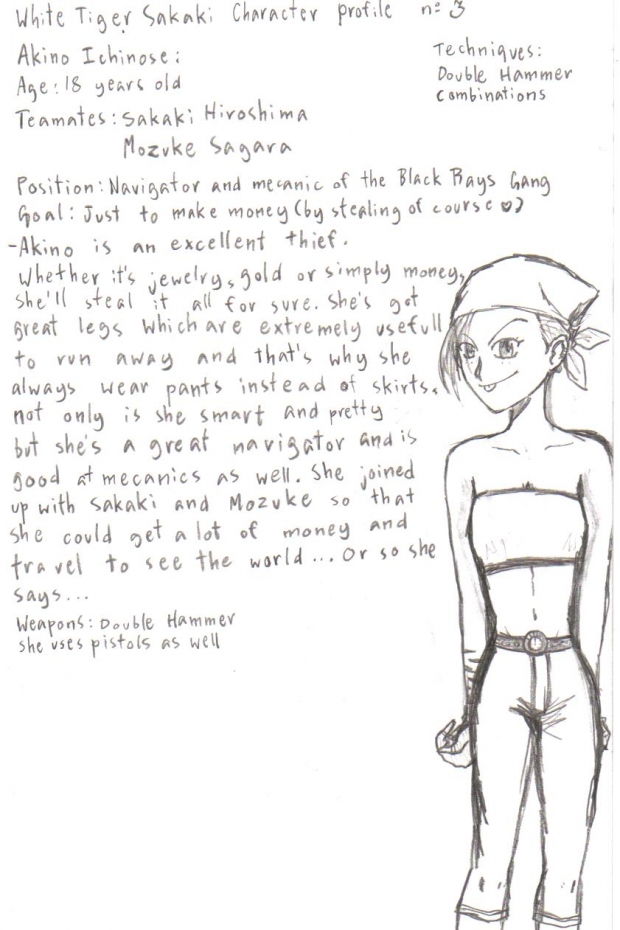 White Tiger Sakaki Character profile nº 3
Akino Ichinose:
Age: 18 years old
Teamates: Sakaki Hiroshima
Mozuke Sagara
Techniques:
Double Hammer
combinations
Position: Navigator and mecanic of the Black Rays Gang
Goal: Just to make money (by stealing of course ♥)
-Akino is an excellent thief.
Whether it's jewelry, gold or simply money,
she'll steal it all for sure. She's got
great legs which are extremely usefull
to run away and that's why she
always wear pants instead of skirts.
not only is she smart and pretty
but she's a great navigator and is
good at mecanics as well. She joined
up with Sakaki and Mozuke so that
she could get a lot of money and
travel to see the world... Or so she
says...
Weapons: Double Hammer
she uses pistols as well